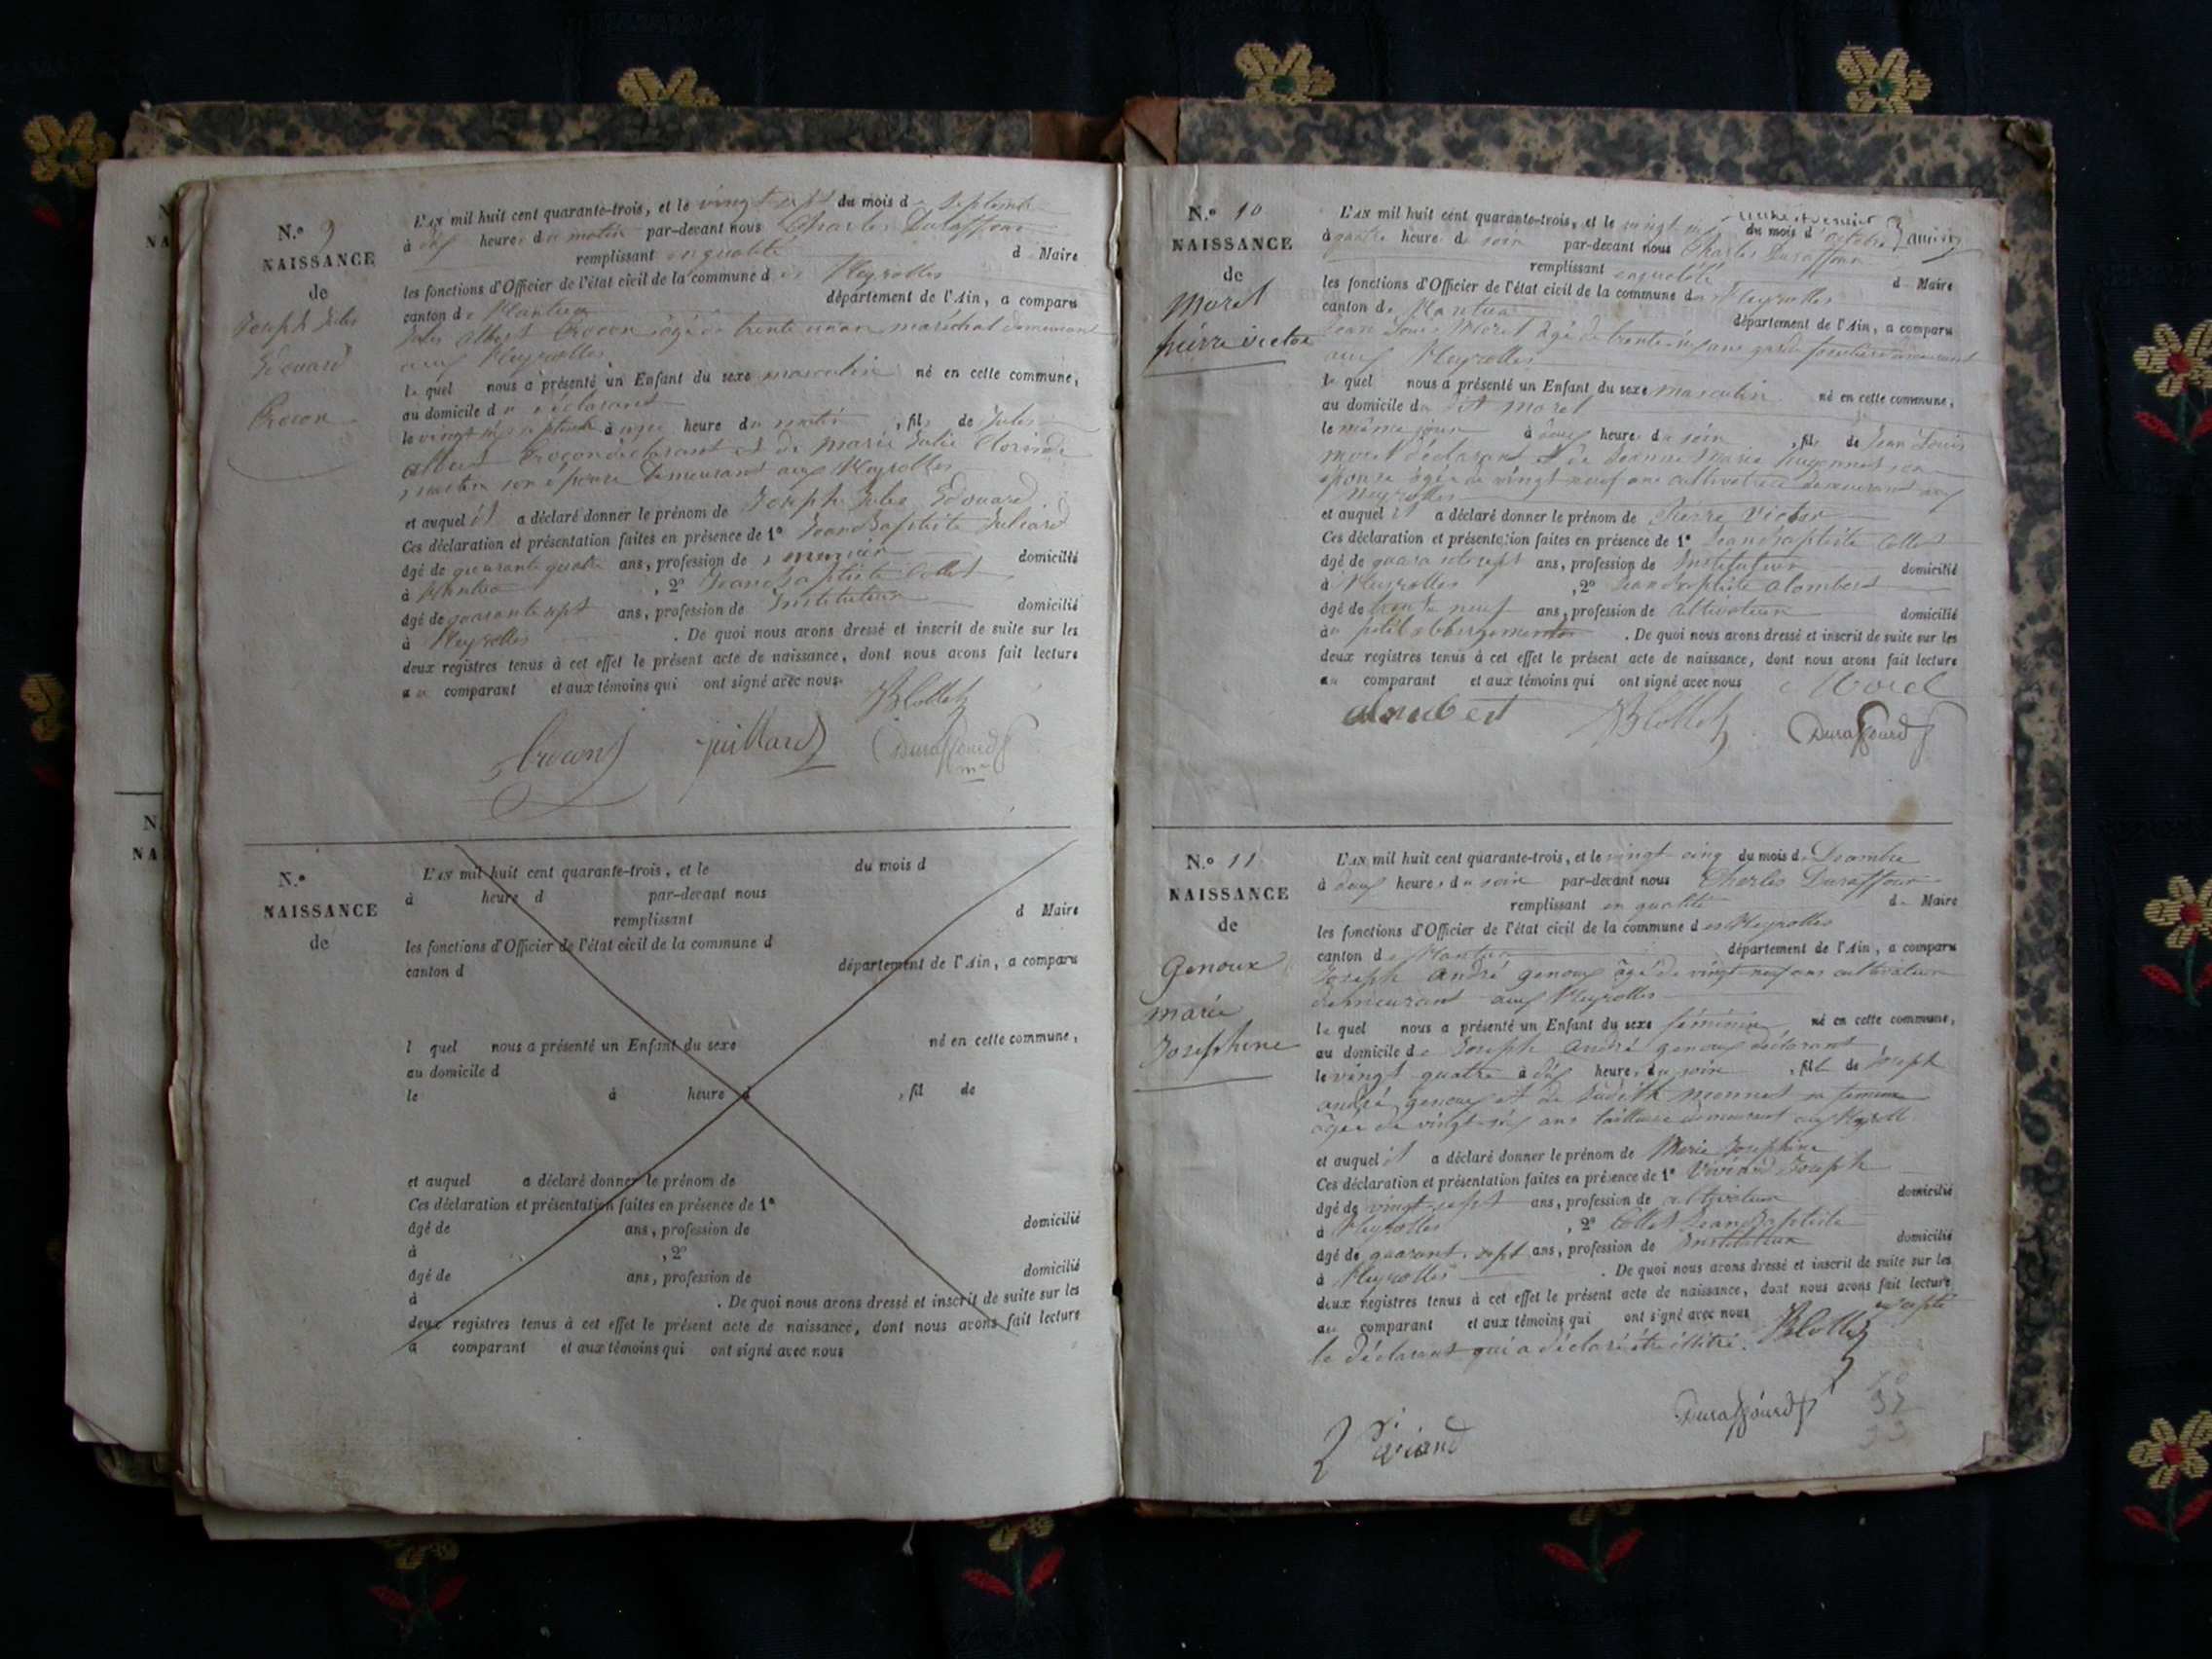 N.° 9
NAISSANCE
de
Joseph Jules
Edouard
L'AN mil huit cent quarante-trois, et le vingt sept du mois de Septembre
à dix heures du matin par-devant nous Charles Duraffour
remplissant en qualité de Maire
les fonctions d'Officier de l'état civil de la commune des Neyrolles
canton de Nantua département de l'Ain, a comparu
Jules Albert âgé de trente ans maréchal demeurant
aux Neyrolles
le quel nous a présenté un Enfant du sexe masculin né en cette commune,
au domicile du déclarant
le vingt septembre à heure du matin, fils de Jules
Albert déclarant et de Marie Julie Clorinde
son épouse demeurant aux Neyrolles
et auquel il a déclaré donner le prénom de Joseph Jules Edouard
Ces déclaration et présentation faites en présence de 1° Jean Baptiste Juliard
âgé de quarante quatre ans, profession de domicilié
à Nantua, 2° Jean Baptiste Collet
âgé de quarante sept ans, profession de Instituteur domicilié
à Neyrolles. De quoi nous avons dressé et inscrit de suite sur les
deux registres tenus à cet effet le présent acte de naissance, dont nous avons fait lecture
au comparant et aux témoins qui ont signé avec nous.
JB Collet
juillard Duraffourd
N.°
NAISSANCE
de
L'AN mil huit cent quarante-trois, et le du mois d
à heure d par-devant nous
remplissant d Maire
les fonctions d'Officier de l'état civil de la commune d
canton d département de l'Ain, a comparu
l quel nous a présenté un Enfant du sexe né en cette commune,
au domicile d
le à heure d, fil de
et auquel a déclaré donner le prénom de
Ces déclaration et présentation faites en présence de 1°
âgé de ans, profession de domicilié
à, 2°
âgé de ans, profession de domicilié
à. De quoi nous avons dressé et inscrit de suite sur les
deux registres tenus à cet effet le présent acte de naissance, dont nous avons fait lecture
a comparant et aux témoins qui ont signé avec nous
N.° 10
NAISSANCE
de
Morel
pierre victor
L'AN mil huit cent quarante-trois, et le vingt du mois d'octobre
à quatre heure du soir par-devant nous Charles Duraffour
remplissant en qualité de Maire
les fonctions d'Officier de l'état civil de la commune des Neyrolles
canton de Nantua département de l'Ain, a comparu
Jean Louis Morel âgé de trente ans garde forestier demeurant
aux Neyrolles
le quel nous a présenté un Enfant du sexe masculin né en cette commune,
au domicile du dit morel
le même jour à deux heures du soir, fils de Jean Louis
morel déclarant et de Jeanne Marie son
épouse âgée de vingt neuf ans cultivatrice demeurant aux
Neyrolles
et auquel il a déclaré donner le prénom de Pierre Victor
Ces déclaration et présentation faites en présence de 1° Jean Baptiste Collet
âgé de quarante sept ans, profession de Instituteur domicilié
à Neyrolles, 2° Jean Baptiste Alombert
âgé de trente neuf ans, profession de Cultivateur domicilié
au petit abbergement. De quoi nous avons dressé et inscrit de suite sur les
deux registres tenus à cet effet le présent acte de naissance, dont nous avons fait lecture
au comparant et aux témoins qui ont signé avec nous Morel
JB Collet Duraffourd
N.° 11
NAISSANCE
de
Genoux
marie
Josephine
L'AN mil huit cent quarante-trois, et le vingt cinq du mois de Décembre
à deux heures du soir par-devant nous Charles Duraffour
remplissant en qualité de Maire
les fonctions d'Officier de l'état civil de la commune des Neyrolles
canton de Nantua département de l'Ain, a comparu
Joseph André genoux âgé de vingt neuf ans cultivateur
demeurant aux Neyrolles
le quel nous a présenté un Enfant du sexe féminin né en cette commune,
au domicile de Joseph André genoux déclarant
le vingt quatre à dix heures du soir, fille de Joseph
André genoux et de Judith monnet sa femme
âgée de vingt six ans tailleuse demeurant aux Neyroll
et auquel il a déclaré donner le prénom de Marie Josephine
Ces déclaration et présentation faites en présence de 1° Viviand Joseph
âgé de vingt-sept ans, profession de cultivateur domicilié
à Neyrolles, 2° Collet Jean Baptiste
âgé de quarante sept ans, profession de Instituteur domicilié
à Neyrolles. De quoi nous avons dressé et inscrit de suite sur les
deux registres tenus à cet effet le présent acte de naissance, dont nous avons fait lecture
au comparant et aux témoins qui ont signé avec nous excepté
le déclarant qui a déclaré être illitré. JB Collet
Duraffourd
37